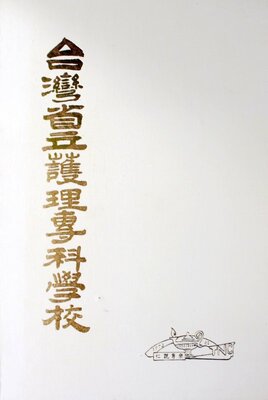 台灣省立護理專科學校